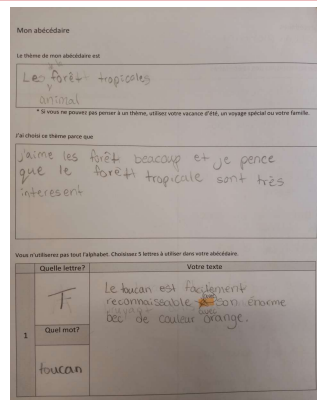 Mon abécédaire
Le thème de mon abécédaire est
Les forêt tropicales
animal
* Si vous ne pouvez pas penser à un thème, utilisez votre vacance d'été, un voyage spécial ou votre famille.
J'ai choisi ce thème parce que
j'aime les forêt beacoup et je pence
que le forêt tropicale sont très
interesent
Vous n'utiliserez pas tout l'alphabet. Choisissez 5 lettres à utiliser dans votre abécédaire.
Quelle lettre? Votre texte
T
Le toucan est facilement
reconnaisseable son énorme
bec de couleur orange.
1
Quel mot?
toucan